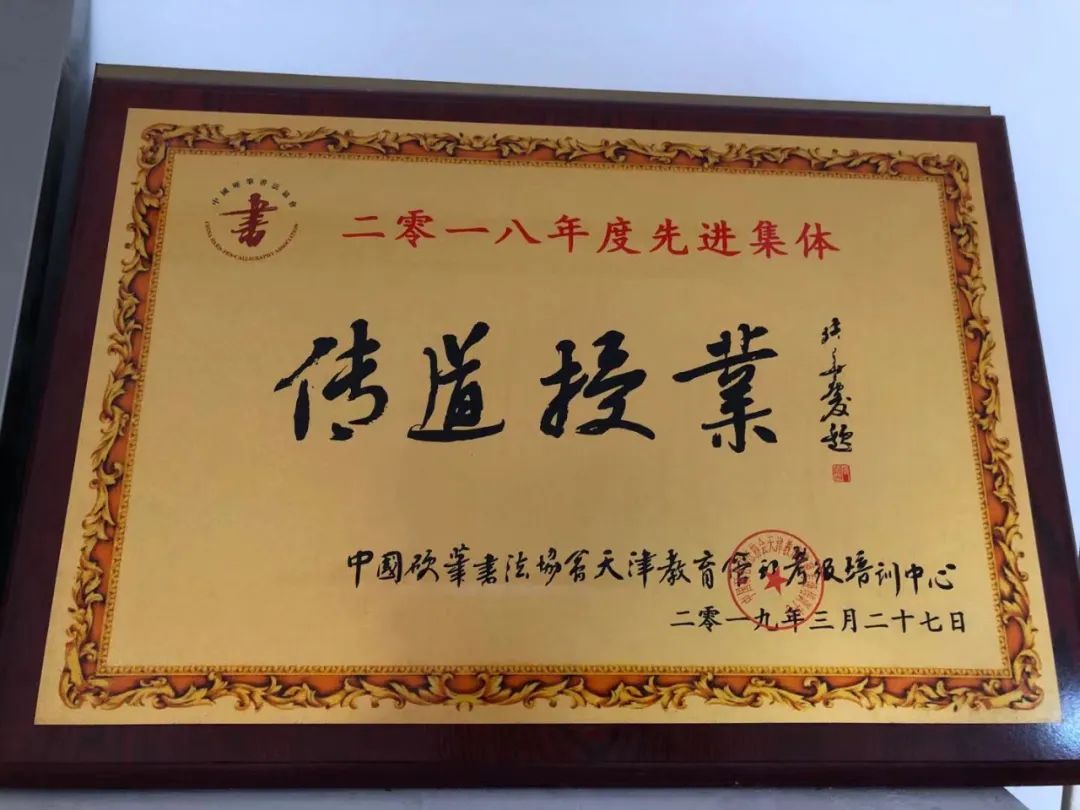 中國硬筆書法協會
CHINA HARD-PEN CALLIGRAPHY ASSOCIATION
書
二零一八年度先进集体
传道授業
张华庆题
中國硬筆書法協會天津教育管理考级培训中心
二零一九年三月二十七日